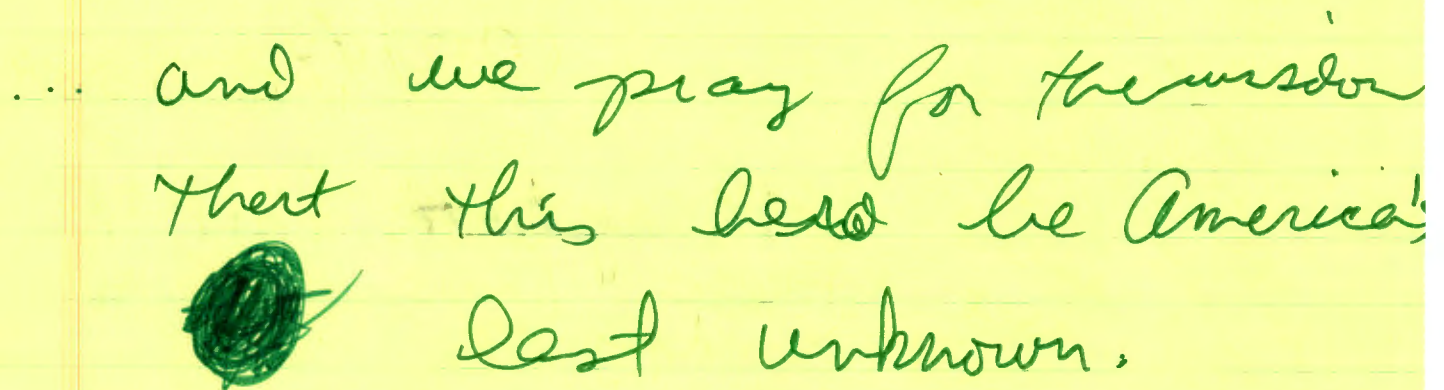 ... and we pray for the wisdom
that this hero be America's
last unknown.